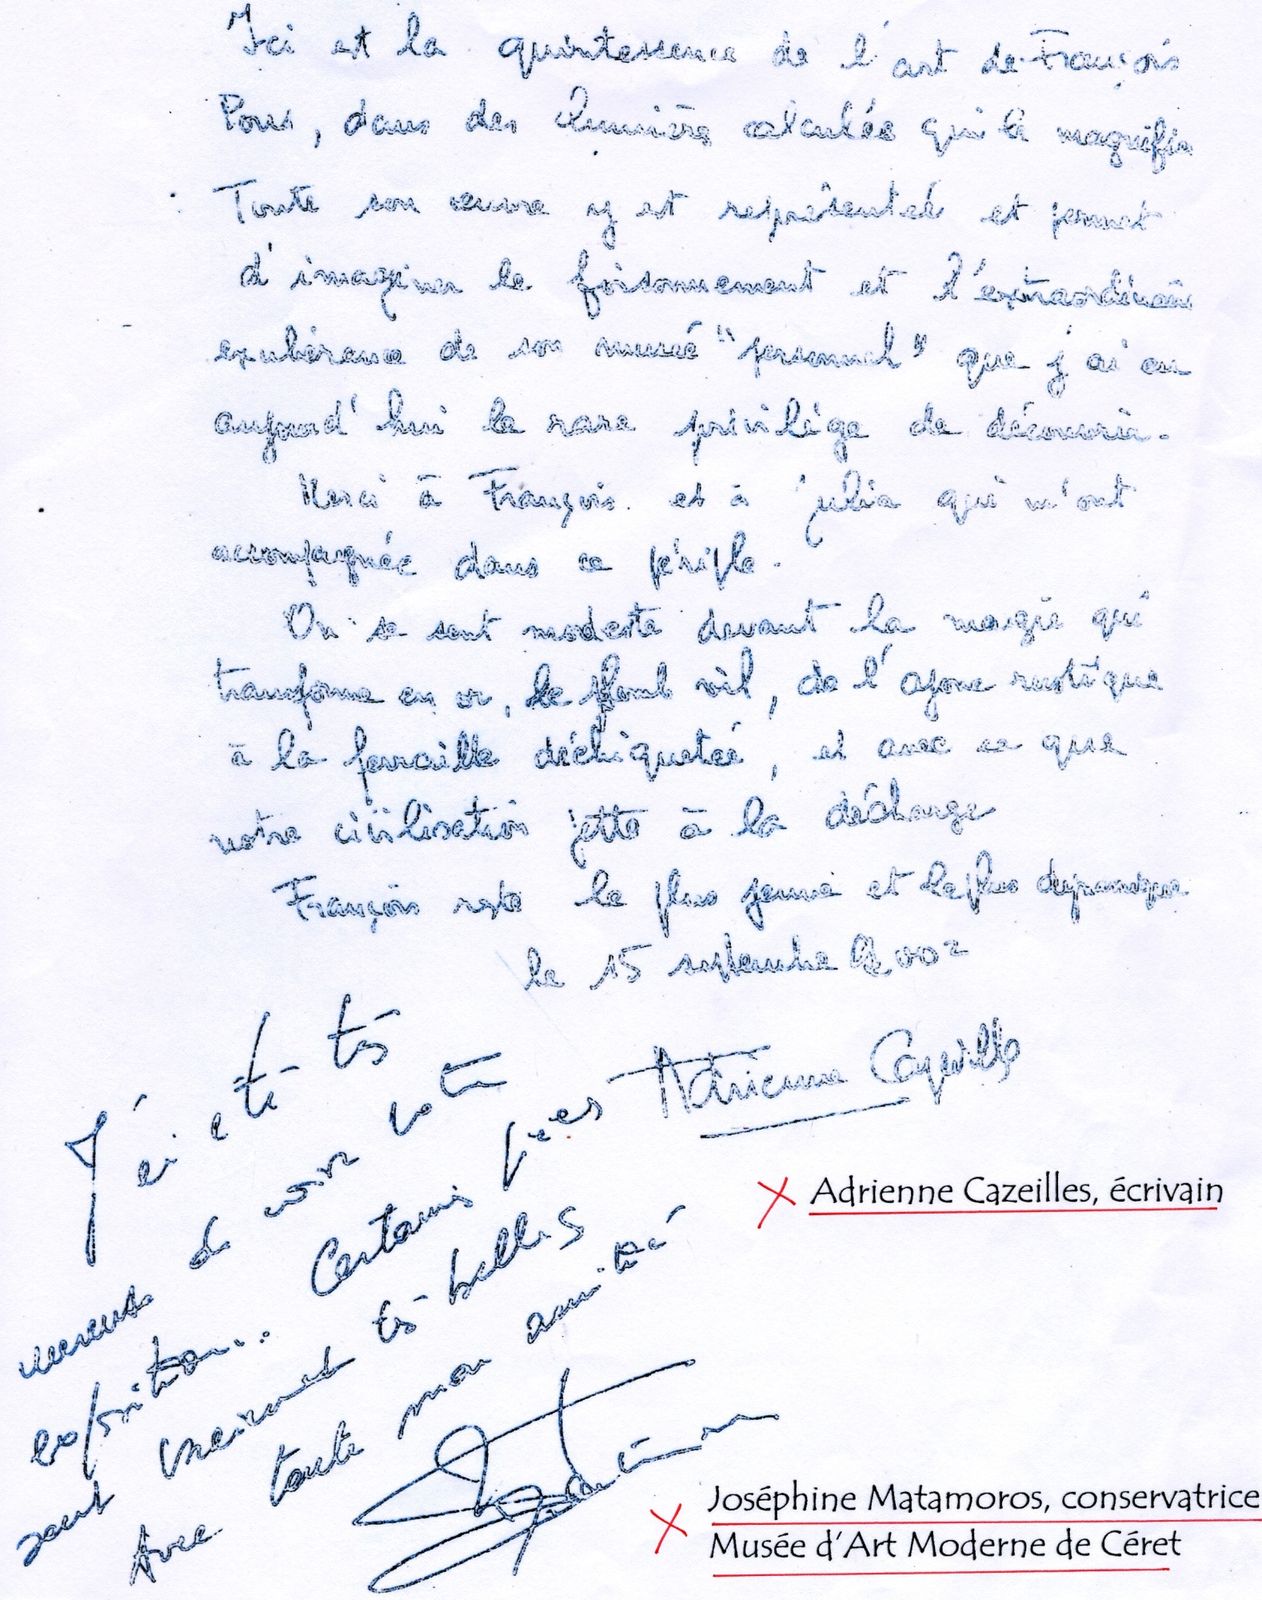 Ici est la quintessence de l'art de François
Pous, dans des lumières calculées qui le magnifie
Toute son œuvre y est représentée et permet
d'imaginer le foisonnement et l'extraordinaire
exubérance de son musée "personnel" que j'ai eu
aujourd'hui le rare privilège de découvrir.
Merci à François et à julia qui m'ont
accompagnée dans ce périple.
On se sent modeste devant la magie qui
transforme en or, le plomb vil, de l'ajonc rustique
à la ferraille déchiquetée, et avec ce que
notre civilisation jette à la décharge
François reste le plus jeune et le plus dynamique
le 15 septembre 2002
Adrienne Cazeilles
Adrienne Cazeilles, écrivain
J'ai été très
heureuse de voir votre
exposition... Certaines pièces
sont vraiment très belles
Avec toute mon amitié
Joséphine Matamoros, conservatrice
Musée d'Art Moderne de Céret